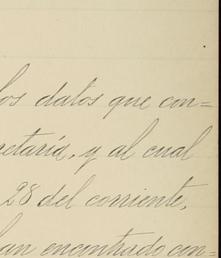 los datos que con=
retaría, y al cual
28 del corriente,
han encontrado con-